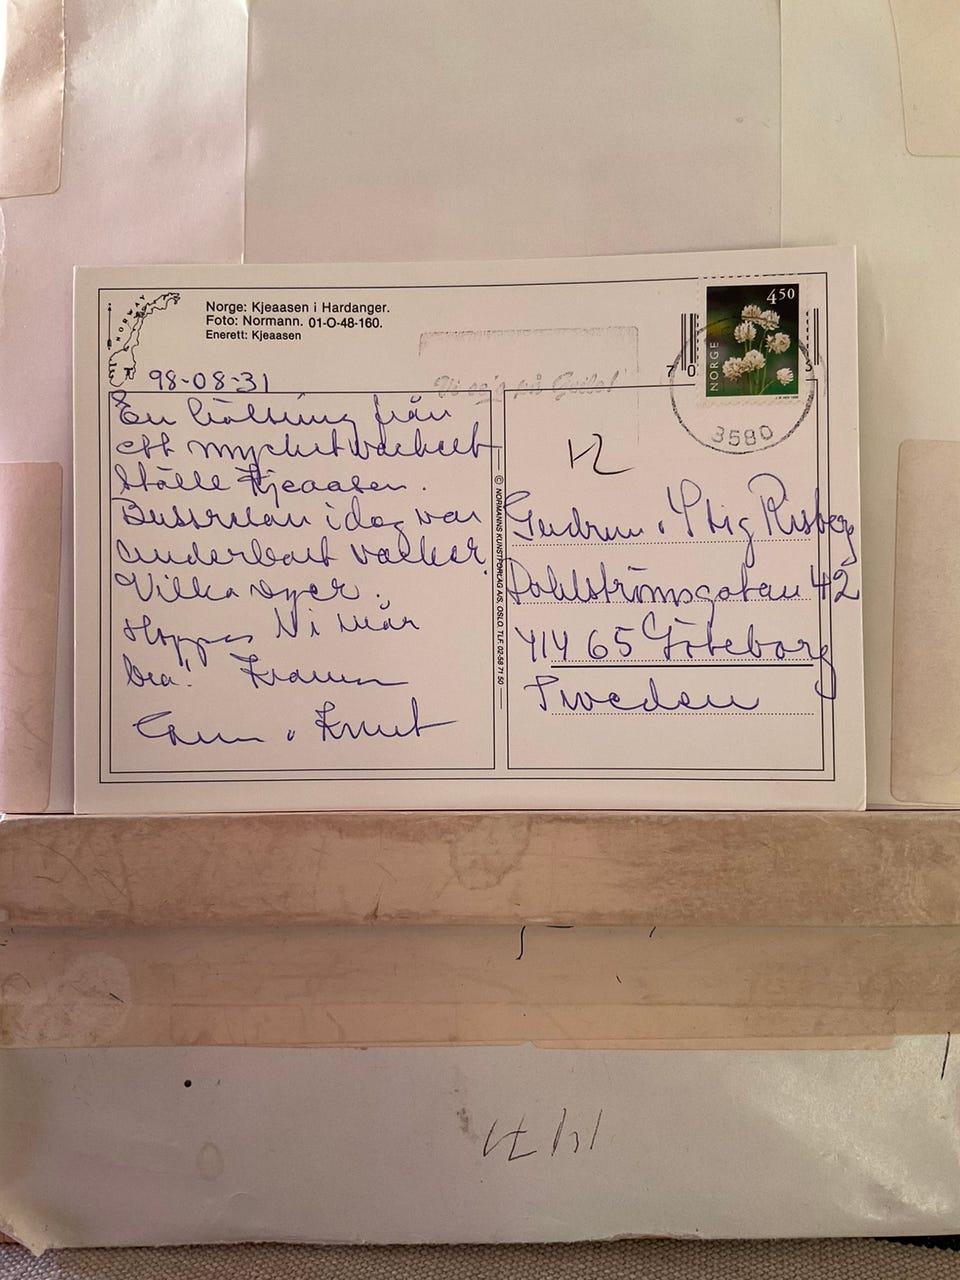 NORWAY
Norge: Kjeaasen i Hardanger.
Foto: Normann. 01-O-48-160.
Enerett: Kjeaasen
98-08-31
En hälsning från
ett mycket vackert
ställe Kjeaasen.
Bussresan idag var
underbart vacker.
Vilka vyer.
Hoppas Ni mår
bra! Kramar
Knut
© NORMANNS KUNSTFORLAG A/S, OSLO. TLF. 02-58 71 50
NORGE
450
3580
på Geilo!
Gudrun o Stig Risberg
Dahlströmsgatan 42
414 65 Göteborg
Sweden